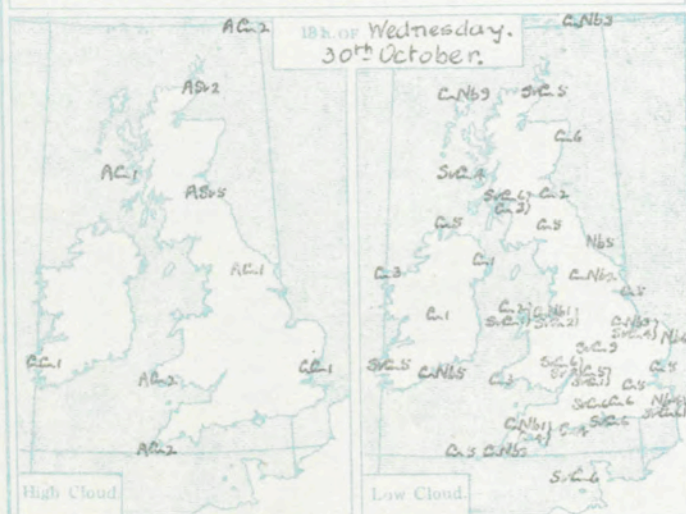 18 h. OF Wednesday.
30th October.
A Cu 2
A St 2
A Cu 1
A St 5
A Cu 1
C Cu 1
C Cu 1
A Cu 2
A Cu 2
High Cloud.
Cu Nb 3
Cu Nb 9
St Cu 5
Cu 6
St Cu 4
St Cu 6
Cu 3
Cu 2
Cu 5
Cu 8
Nb 5
Cu 3
Cu 1
Cu Nb 2
Cu 1
Cu 2
Cu Nb 1
St Cu 2
Cu Nb 3
St Cu 4
St Cu 9
St Cu 5
Cu Nb 5
Cu 3
St Cu 6
Cu 5
Cu 5
St Cu 6
Cu 6
Cu Nb 1
St Cu 5
Cu 3
Cu Nb 5
St Cu 6
Low Cloud.